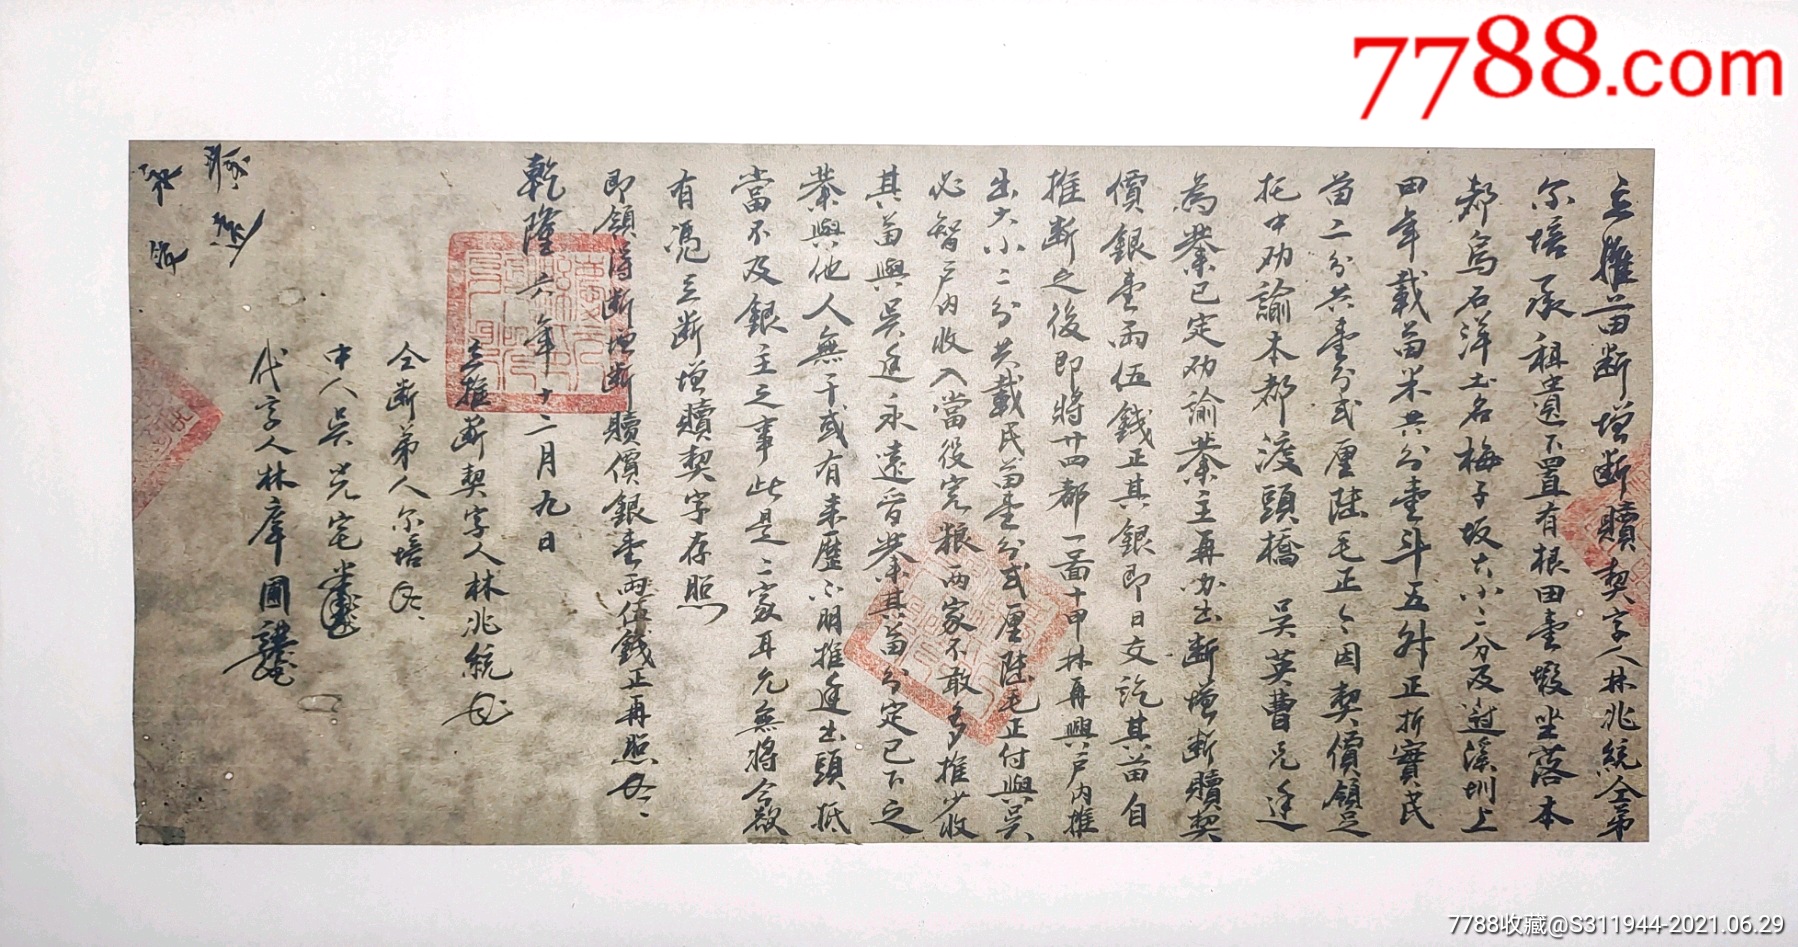 7788.com
立推苗断增断贖契字人林兆統仝弟
尔培承祖遺下置有根田壹塅坐落本
都烏石洋土名梅子坂大小二分及过溪圳上
田年載苗米共分壹斗五升正折實民
苗二分共壹分弍厘陸毛正今因契價領足
托中劝諭本都渡頭橋 吴英曹兄廷
為業已定劝諭業主再办出断增断贖契
價銀壹兩伍錢正其銀即日交訖其苗自
推断之後即將廿四都一啚十甲林再興户内推
出大小二分共載民苗壹分弍厘陸毛正付與吴
必智户内收入當役完粮兩家不敢多推少收
其苗與吴廷永遠晉業其苗分定已下之
業與他人無干或有来歷不明推廷出頭抵
當不及銀主之事此是二家耳允無將今欲
有憑立断增贖契字存照
即領得断增断贖價銀壹兩伍錢正再照
乾隆六年十二月九日
立推断契字人林兆統
仝断弟人尔培
中人吴兄宅
代字人林摩圃
7788收藏@S311944-2021.06.29